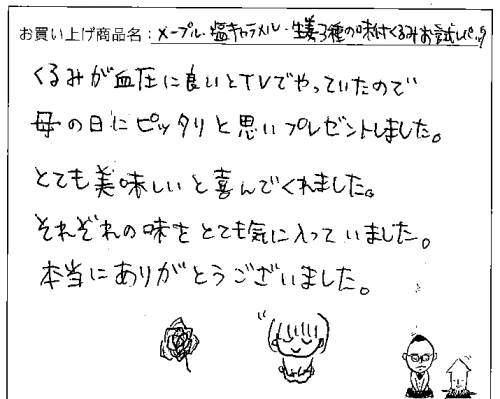 お買い上げ商品名：メープル・塩キャラメル・生姜3種の味付くるみお試しパック
くるみが血圧に良いとTVでやっていたので
母の日にピッタリと思いプレゼントしました。
とても美味しいと喜んでくれました。
それぞれの味をとても気に入っていました。
本当にありがとうございました。